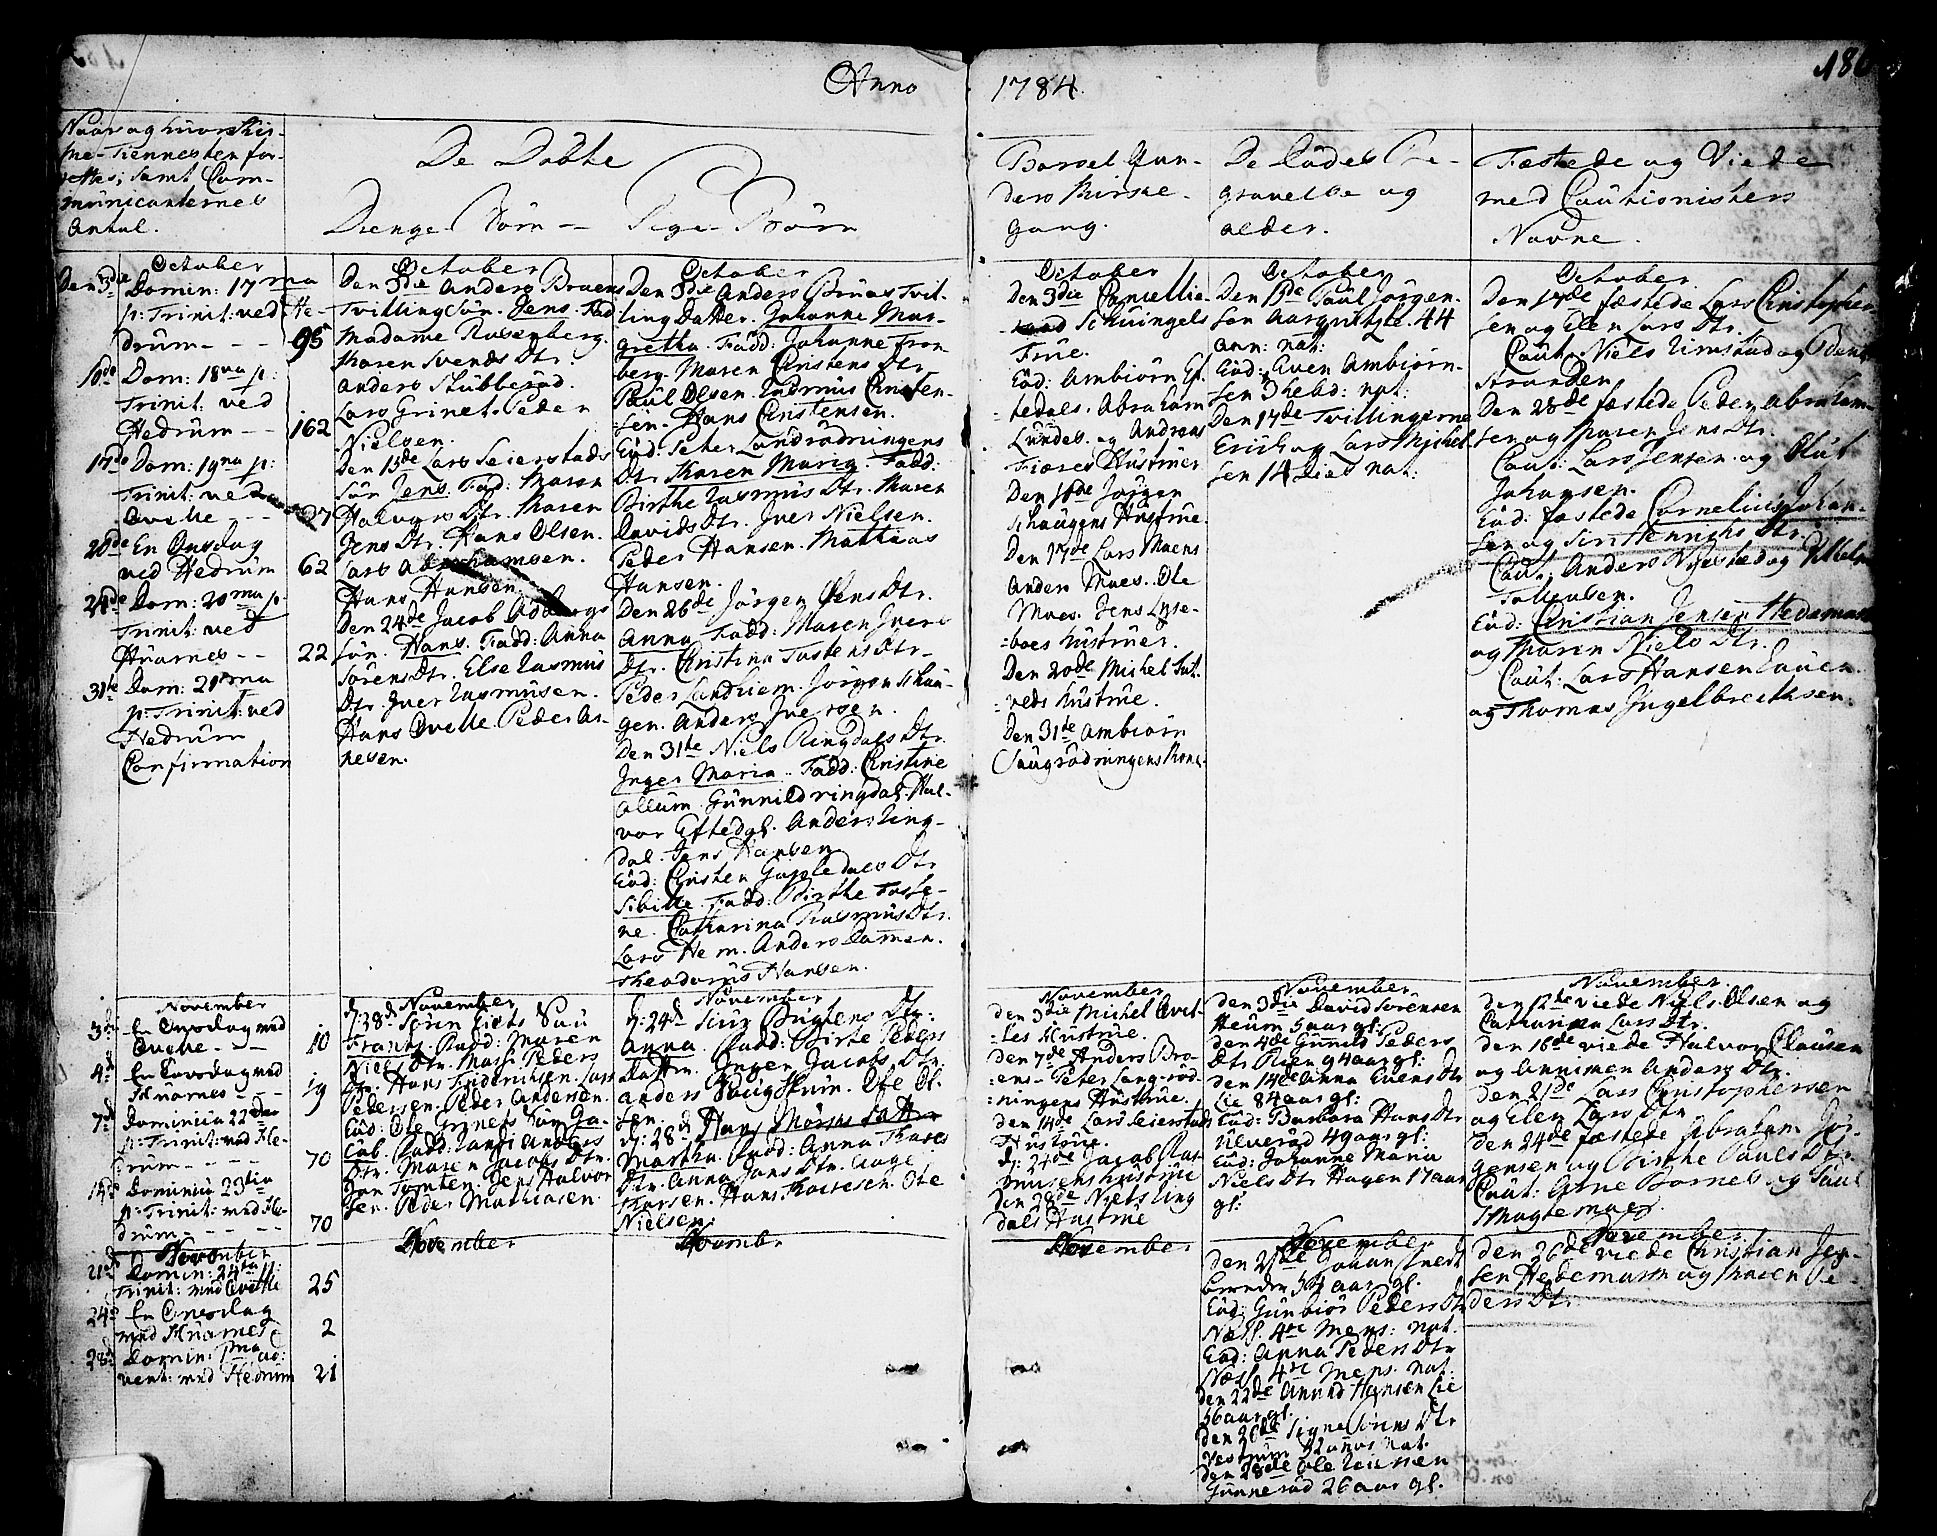 Anno
1784.
186
Naar og hvor Kir-
ke-Tiennesten for-
rettes, samt Com-
municanternes
Antal.
De Døbte
Drenge-Børn -- Pige-Børn
Barsel Qvin-
ders Kirke-
gang.
De Dödes Be-
gravelse og
alder.
Fæstede og Viede
med Cautionisters
Navne.
October
Den 3die Domin: 17ma
p: Trinit: ved He-
drum - - - 95
10de Dom: 18na p:
Trinit: ved
Hedrum - - 162
17de Dom: 19na p:
Trinit: ved
Qvelle - - 27
20de En Onsdag
ved Hedrum 62
24de Dom: 20ma p:
Trinit: ved
Hvarnes - - 22
31te Dom: 21ma
p: Trinit: ved
Hedrum
Confirmation
October
Den 3die Anders Bruens
Tvilling Sön. Jens. Fad
Madame Rosenberg.
Maren Svends Dtr.
Anders Stubberud.
Lars Grinet. Peder
Nielsen.
Den 15de Lars Seierstads
Sön Jens. Fad: Maren
Halvors Dtr. Maren
Jens Dtr. Hans Olsen.
Lars Abrahamsen.
Hans Hansen.
Den 24de Jacob Odbergs
Sön. Hans. Fadd: Anna
Sörens Dtr. Else Rasmus
Dtr. Iver Rasmusen.
Hans Qvelle. Peder Ar-
nesen.
October
Den 3die Anders Bruns Tvil-
ling Datter. Johanne Mar-
gretha. Fadd: Johanne Fron
berg. Maren Christens Dtr
Paul Olsen. Rasmus Christen-
sen. Hans Christensen.
Eod: Peter Landrödningens
Dtr. Karen Maria. Fadd:
Birthe Rasmus Dtr. Maren
Davids Dtr. Iver Nielsen.
Peder Hansen. Mathias
Hansen.
Den 26de Jörgen Jens Dtr.
Anna. Fadd: Maren Ivers
Dtr. Christina Tostens Dtr.
Peder Landhiem. Jörgen Skau-
gen. Anders Iversen.
Den 31te Niels Ringdals Dtr.
Inger Maria. Fadd: Christine
Allum. Gunnild Ringdal. Hal-
vor Eftedal. Anders Ring-
dal. Jens Hansen
Eod: Christen Gapledals Dtr
Sibille. Fadd: Birthe Toste-
ne. Catharina Rasmus Dtr.
Lars Hem. Anders Damen.
Theodorus Hansen.
October
Den 3die
Schuingels
Frue.
Eod: Ambiörn Ef-
tedals. Abraham
Lundes. og Andreas
Fiæres Hustruer
Den 10de Jörgen
Schaugens Hustrue.
Den 17de Lars Moens
Anders Moes. Ole
Moes. Jens Lyse-
boes Hustruer.
Den 20de Michel
Hustrue.
Den 31te Ambiörn
Haugrödningens Kone.
October
Paul Jörgen-
sen 44
ann: nat:
Eod: Even Ambiörn-
sen 3 hebd: nat:
Den 17de Tvillingerne
Erich og Lars Michel
sen 14 Dies nat:
October.
Den 17de fæstede Lars Christopher-
sen og Elen Lars Dtr.
Caut: Niels og
Stranden.
Den 28de fæstede Peder Abraham-
sen og Maren Jens Dtr.
Caut: Lars Jensen og Oluf
Johansen.
Eod: fæstede Cornelius Johan-
sen og Siri Henrichs Dtr.
Caut: Anders og Wilhelm
Tollevsen.
Eod: Christian Jensen Hedemark
og Maren Niels Dtr.
Caut: Lars Hansen
og Thomas Ingelbrechtsen.
November
3die En Onsdag med
Qvelle - - 10
4de En Torsdag med
Hvarnes - - 19
7de Dominica 22da
p: Trinit: med He-
drum - - - - 70
14de Dominica 23tia
p: Trinit: med He-
drum - - - - 70
November
21de Domin: 24ta p:
Trinit: med Qvelle 25
24de En Onsdag
med Hvarnes 2
28de Domin: 1ma ad:
vent: med Hedrum 21
November
Sören
Frants. Fadd: Maren
Niels Dtr. Mari Peders
Dtr. Hans Friderichsen. Lars
Pedersen. Peder Andersen.
Eod: Ole Grinets Sön Ja-
cob. Fadd: Anders
Dtr. Maren Jacobs Dtr.
Jens Halvor
sen. Peder Mathiasen.
November
November
d: 24d Dtr:
Anna. Fadd: Birte Peders
Dattr. Inger Jacobs Dtr.
Anders Haugskum. Ole Ol-
sen.
d: 28d Hans Moens Datter
Martha. Fadd: Anna Thores
Dtr. Anna Jans Dtr. Aage
Thorsen. Hans Thoresen. Ole
Nielsen.
November
November
den 3die Michel Qvel-
les Hustrue.
den 7de Anders Bru-
ens - Peter Lang-röd-
ningens Hustrue.
den 14de Lars Seierstads
Hustrue.
d: 24de Jacob Ras-
musens hustrue
den 28de Niels Ring
dals Hustrue
November
November
den 3die David Sörensen
Heum 5 aar gl:
den 4de Gunild Peders
Dtr 94 aar gl:
den 14de Anna Evens Dtr
Lie 84 aar gl:
Eod: Barbara Hans Dtr
Ulverud 49 aar gl:
Eod: Johanne Maria
Niels Dtr Hagen 17 aar
gl:
November
den 21de Johan
54 aar gl.
Eod: Gunbior Peders Dtr
Næss. 4re Mens: nat.
Eod: Anna Peders Dtr
Næss. 4re Mens. nat:
den 22de Amund Hansen Lie
56 aar gl.
den 26de Signe Sörens Dtr
Vestrum 32 anos nat.
den 28de Ole
Gunnerud 26 aar gl.
November
den 12te viede Niels Olsen og
Catharina Lars Dtr.
den 16de viede Halvor Clausen
og Annichen Anders Dtr.
den 21de Lars Christophersen
og Elen Lars Dtr
den 24de fæstede Abraham Jör-
gensen og Birthe Pauls Dtr.
Caut: Arne Bornes og Paul
November
den 26de viede Christian Jen-
sen Hedemark og Maren Pe-
ders Dtr